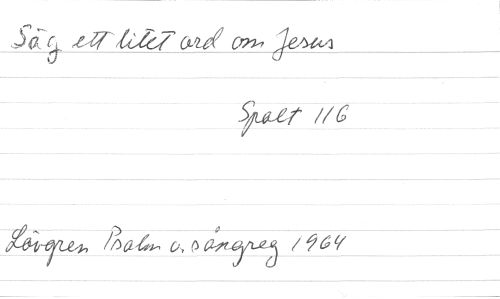 Säg ett litet ord om Jesus
Spalt 116
Lövgren Psalm o. sångreg 1964